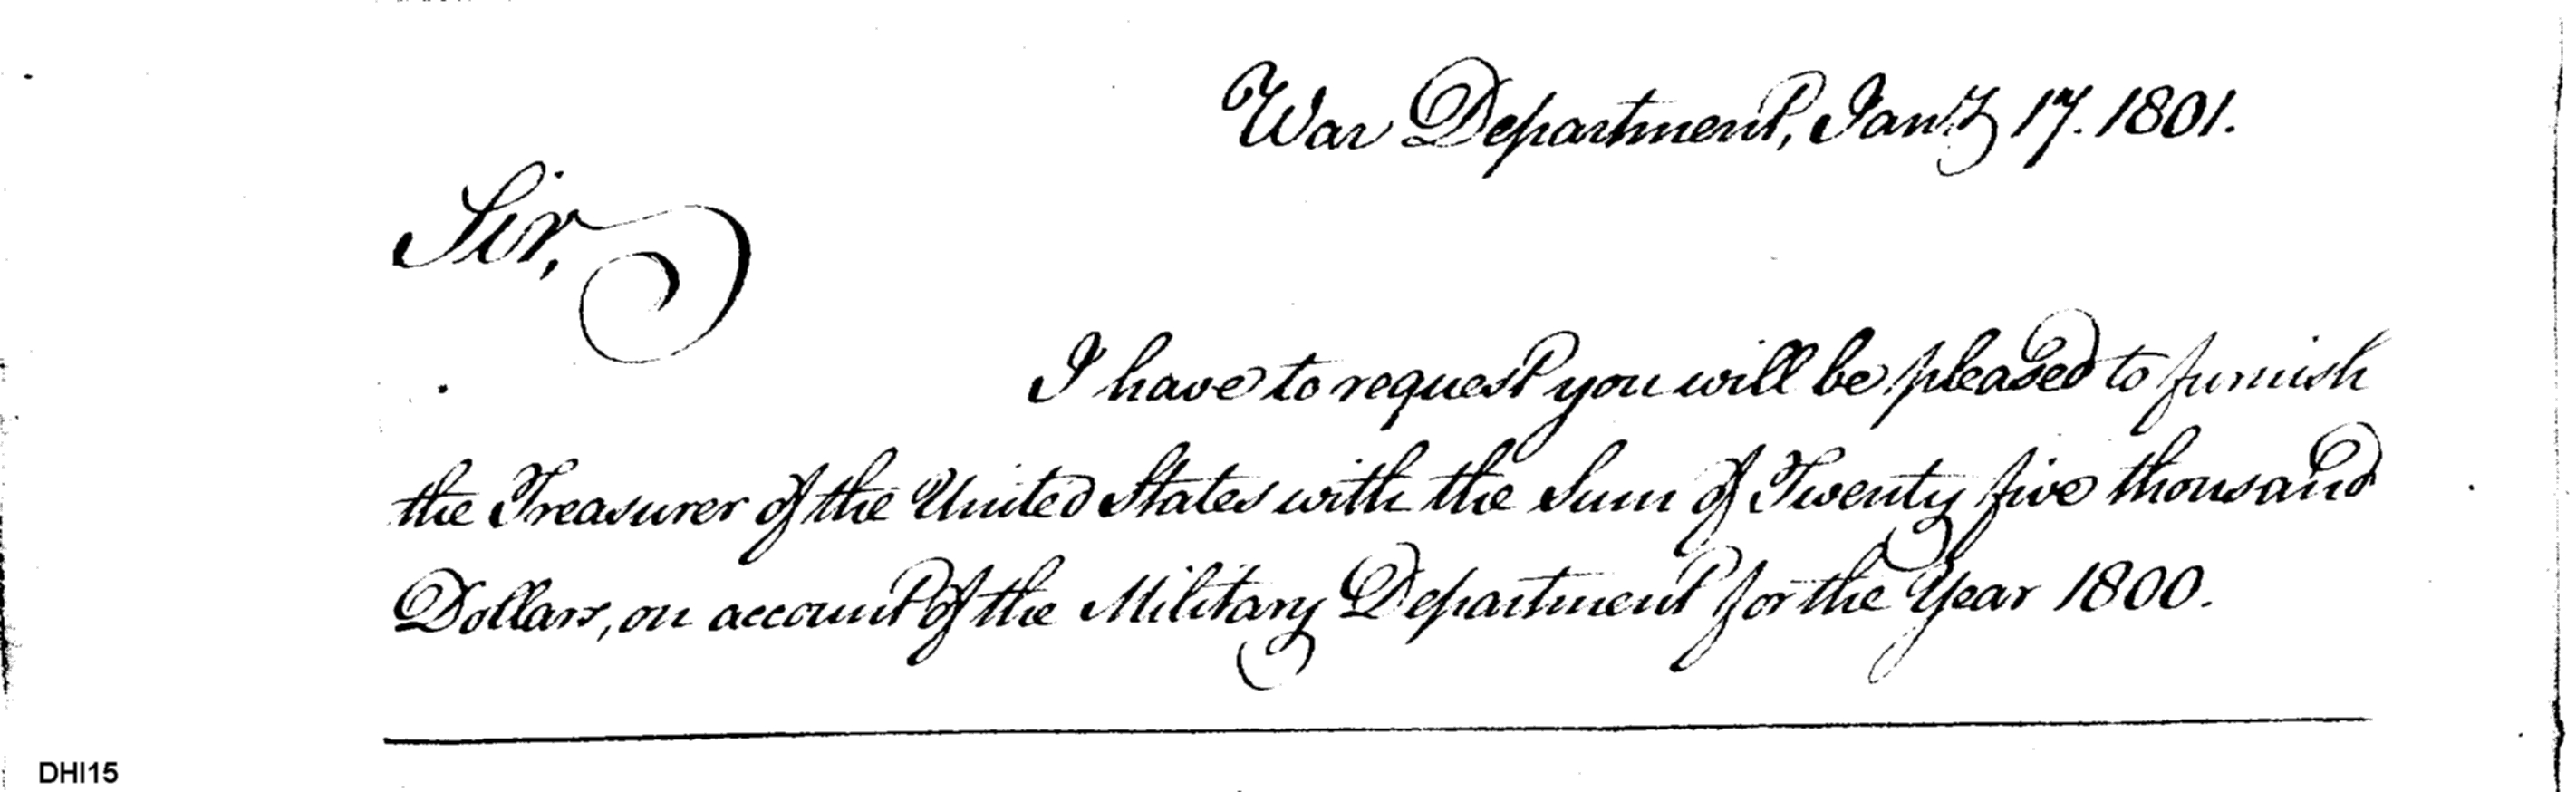 War Department, Jany 17. 1801.
Sir,
I have to request you will be pleased to furnish
the Treasurer of the United States with the Sum of Twenty five thousand
Dollars, on account of the Military Department for the Year 1800.
DHI15